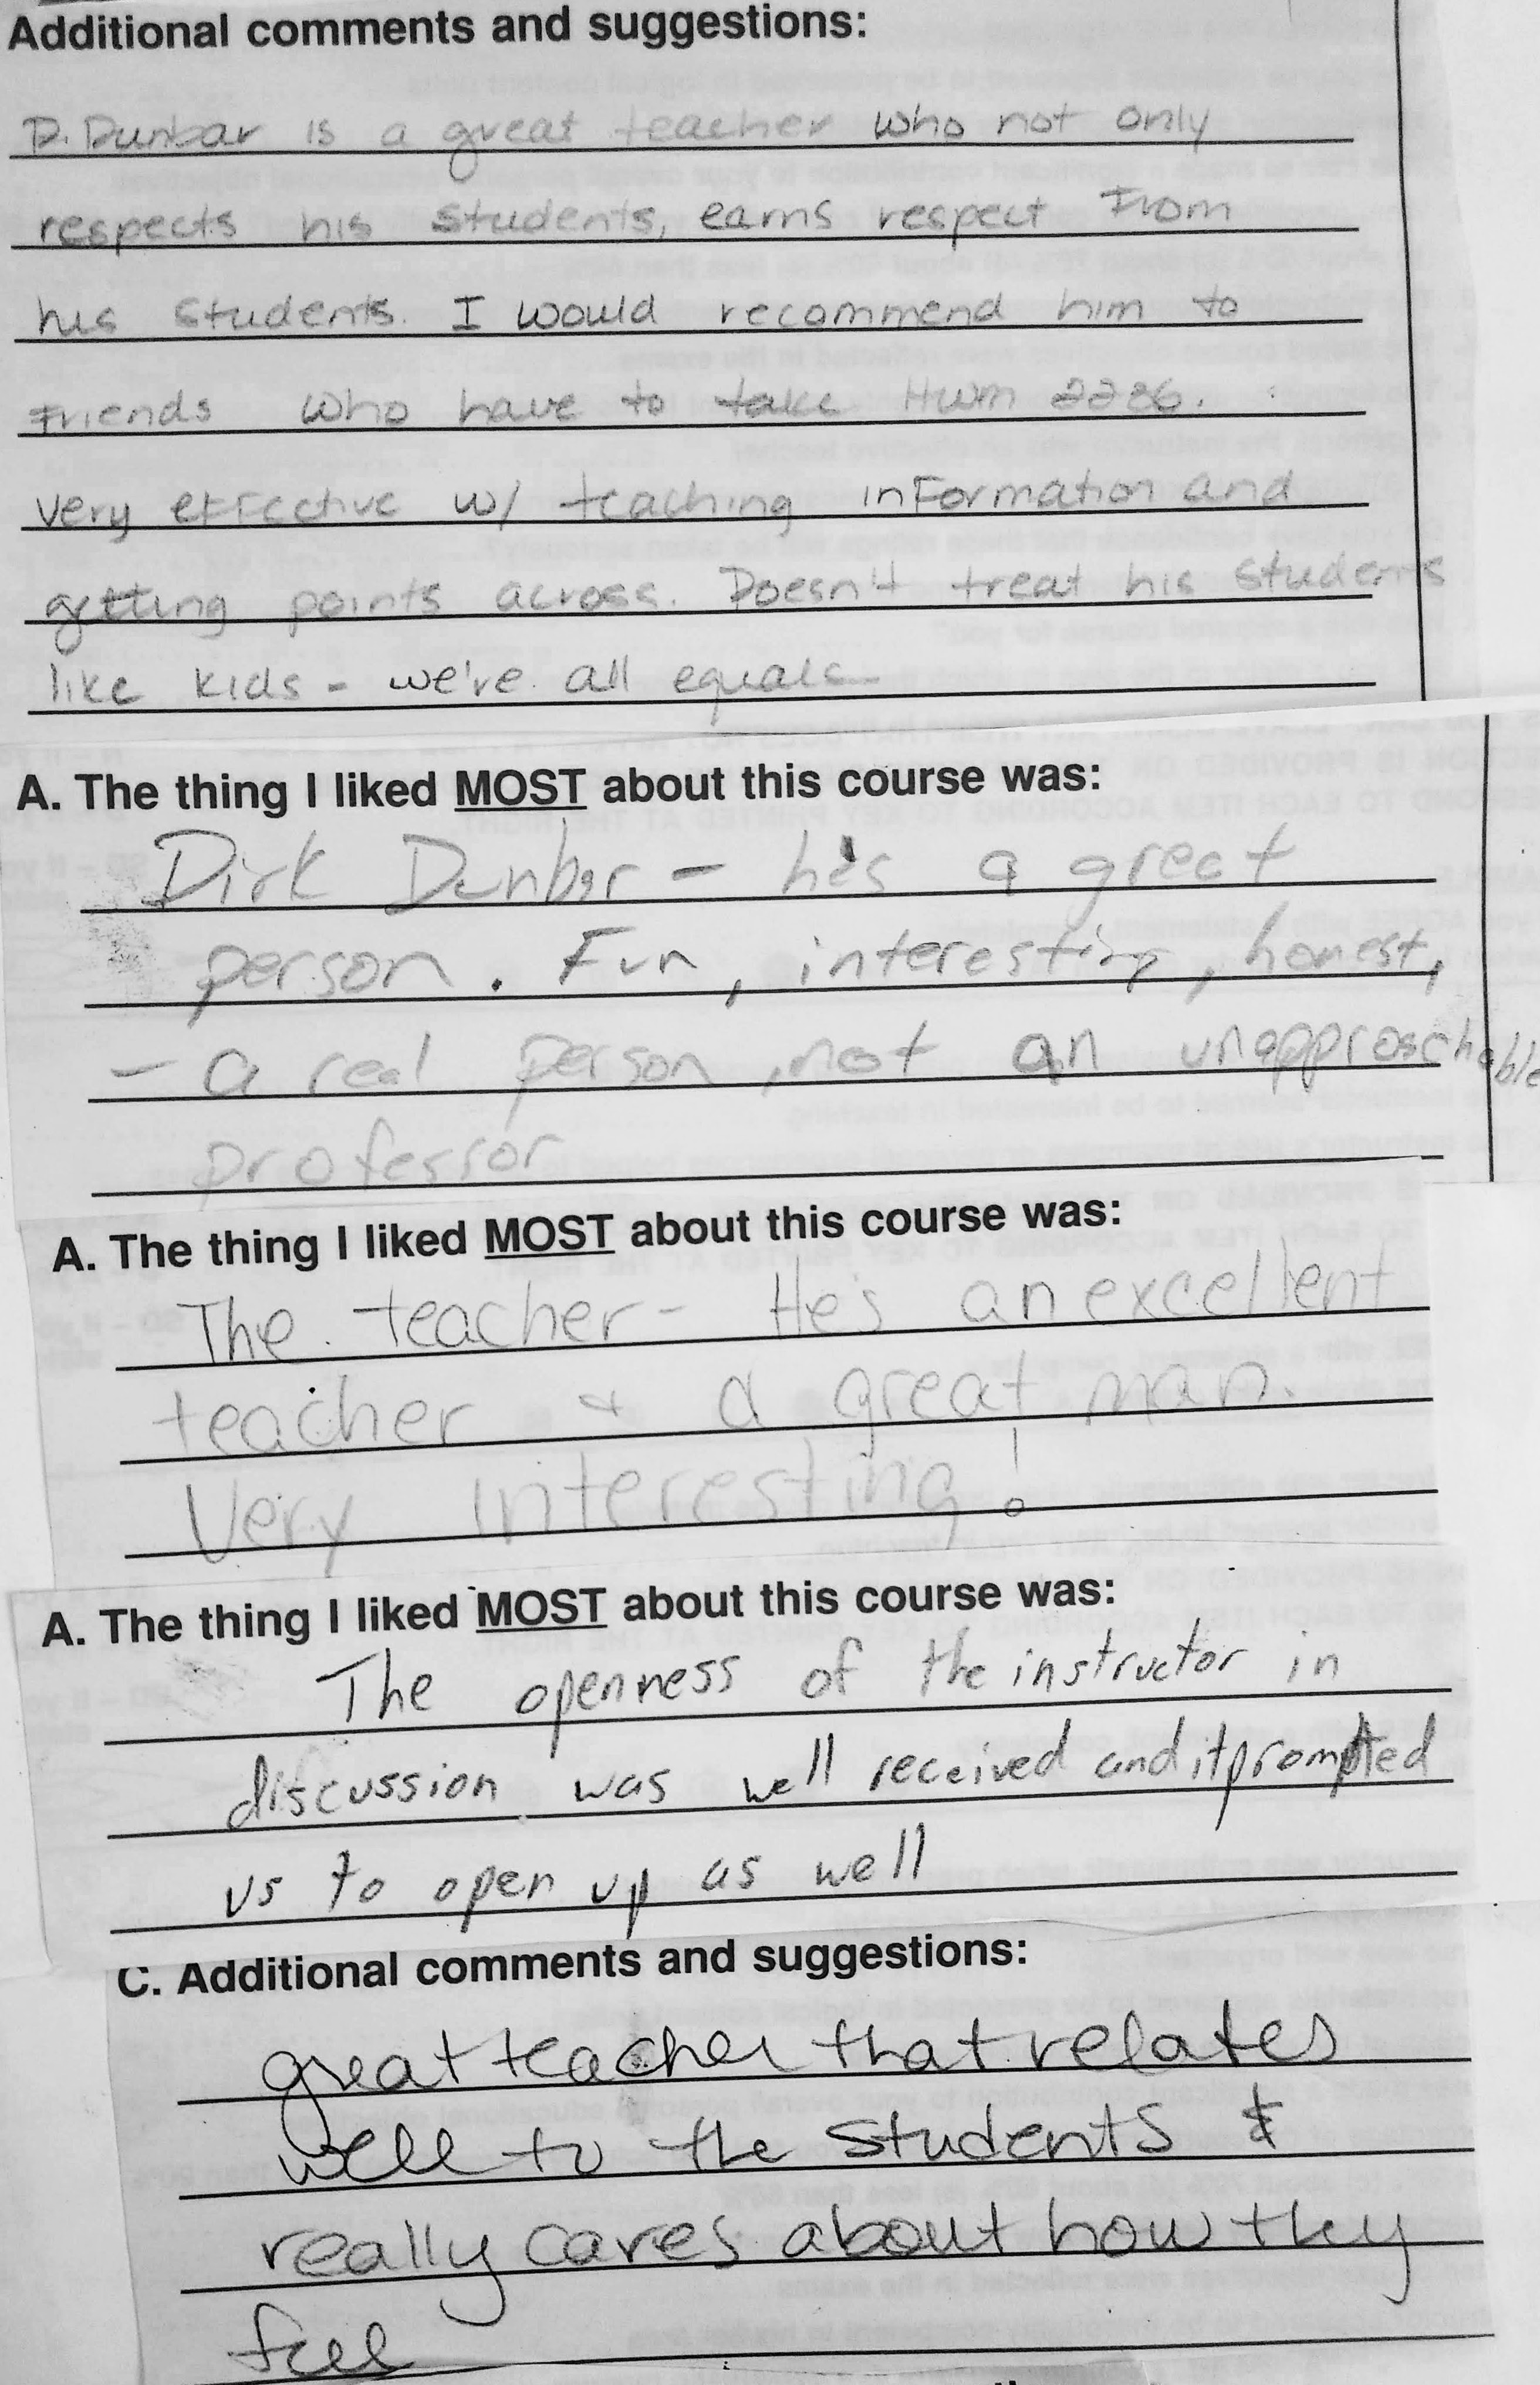 Additional comments and suggestions:
D. Dunbar is a great teacher who not only
respects his students, earns respect from
his students. I would recommend him to
Friends who have to take Hum 2236.
very effective w/ teaching information and
getting points across. Doesn't treat his students
like kids - we're all equals
A. The thing I liked MOST about this course was:
Dirk Dunbar - he's a great
person. Fun, interesting, honest,
- a real person, not an unapproachable
professor
A. The thing I liked MOST about this course was:
The teacher - He's an excellent
teacher & a great man.
Very interesting!
A. The thing I liked MOST about this course was:
The openness of the instructor in
discussion was well received and it prompted
us to open up as well
C. Additional comments and suggestions:
great teacher that relates
well to the students &
really cares about how they
feel